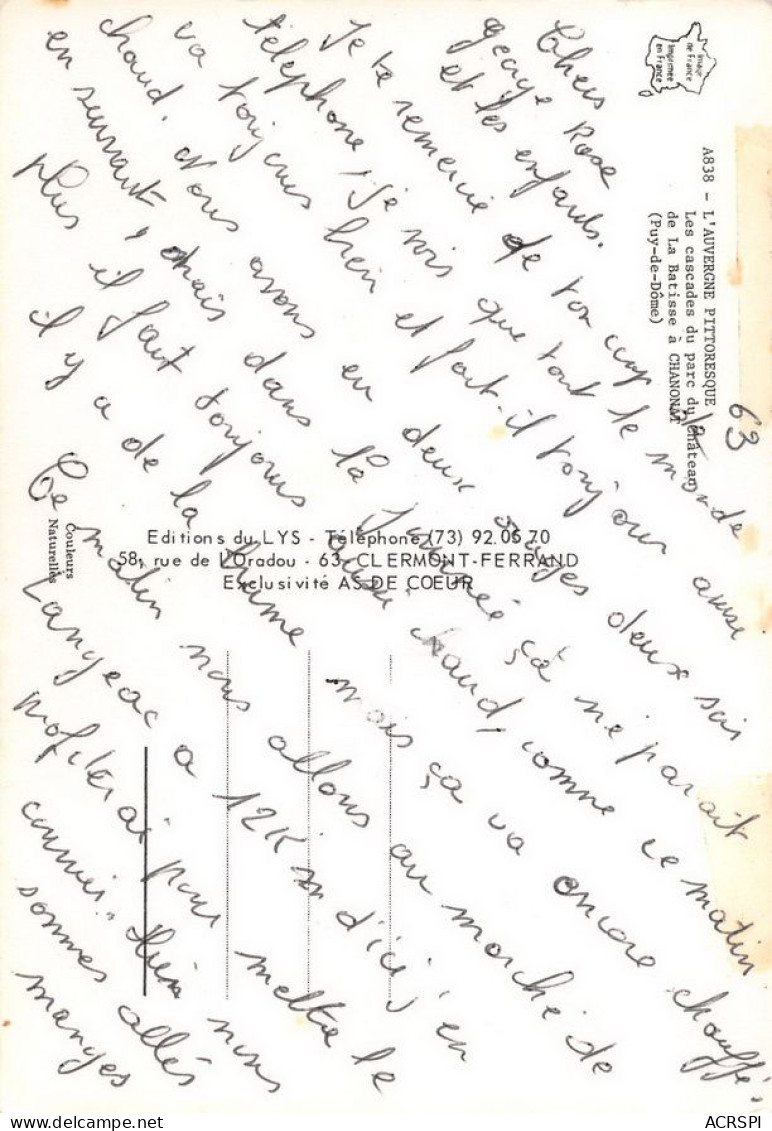 Chers
george Rose
et les enfants.
Je te remercie de ton coup de
téléphone, je vois que tout le monde
va toujours bien et fait-il toujours aussi
chaud. Nous avons eu deux orages deux soirs
en suivant, mais dans la journée ça ne parait
plus, il fait toujours aussi chaud, comme ce matin
il y a de la brume mais ça va encore chauffé.
Ce matin nous allons au marché de
Langeac a 12 K m d'ici, j'en
profiterai pour mettre le
courrier. Hier nous
sommes allés
manges
Image
de France
Imprimée
en France
A838 - L'AUVERGNE PITTORESQUE
Les cascades du parc du Château
de La Batisse à CHANONAT
(Puy-de-Dôme)
63
Editions du LYS - Téléphone (73) 92.05.70
58, rue de L'Oradou - 63 CLERMONT-FERRAND
Exclusivité AS DE COEUR
Couleurs
Naturelles
ACRSPI